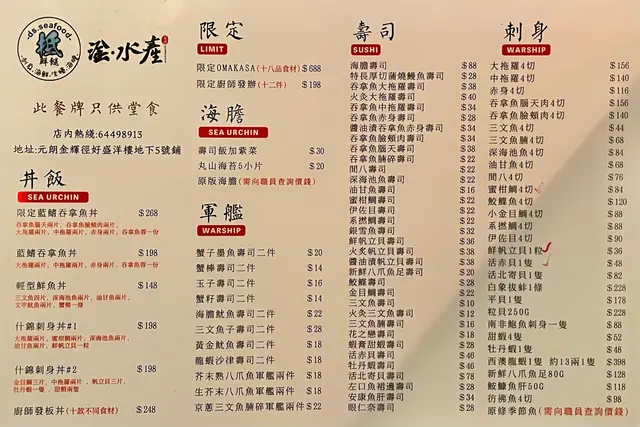 ds.seafood
鮮鮭
淦·水產
此餐牌只供堂食
店內熱綫:64498913
地址:元朗金輝徑好盛洋樓地下5號鋪
丼飯
SEA URCHIN
限定藍鰭吞拿魚丼 $268
吞拿魚腦天兩片、吞拿魚臉頰兩片、
大拖羅兩片、中拖羅兩片、赤身兩片、吞拿魚蓉一份
藍鰭吞拿魚丼 $198
大拖羅兩片、中拖羅兩片、赤身兩片、吞拿魚蓉一份
輕型鮮魚丼 $148
三文魚四片、深海池魚兩片、油甘魚兩片、
文甲魷魚兩片、蟹柳一條
什錦刺身丼#1 $198
大拖羅兩片、蜜柑鯛兩片、深海池魚兩片、
油甘魚兩片、鮮帆立貝一粒
什錦刺身丼#2 $198
金目鯛三片、中拖羅兩片、帆立貝三片、
牡丹蝦一隻、甜蝦兩隻
廚師發板丼(十款不同食材) $248
限定
LIMIT
限定OMAKASA(十八品食材) $688
限定廚師發辦(十二件) $198
海膽
SEA URCHIN
壽司飯加紫菜 $30
丸山海苔5小片 $20
原版海膽(需向職員查詢價錢)
軍艦
WARSHIP
蟹子墨魚壽司二件 $20
蟹棒壽司二件 $14
玉子壽司二件 $16
蟹籽壽司二件 $14
海膽魷魚壽司二件 $22
三文魚子壽司二件 $28
黃金魷魚壽司二件 $18
龍蝦沙律壽司二件 $18
芥末熟八爪魚軍艦兩件 $18
生芥末八爪魚軍艦兩件 $18
京蔥三文魚腩碎軍艦兩件 $22
壽司
SUSHI
海膽壽司 $88
特長厚切蒲燒鰻魚壽司 $28
吞拿魚大拖羅壽司 $38
火炙大拖羅壽司 $40
吞拿魚中拖羅壽司 $34
吞拿魚赤身壽司 $28
醬油漬吞拿魚赤身壽司 $34
吞拿魚臉頰壽司 $34
吞拿魚腦天壽司 $38
吞拿魚腩碎壽司 $22
間八壽司 $22
深海池魚壽司 $22
油甘魚壽司 $16
蜜柑鯛壽司 $22
伊佐目壽司 $22
系撚鯛壽司 $22
銀雪魚壽司 $32
鮮帆立貝壽司 $36
火炙帆立貝壽司 $38
醬油漬帆立貝壽司 $38
新鮮八爪魚足壽司 $20
鮫鰈壽司 $28
金目鯛壽司 $22
三文魚壽司 $10
火炙三文魚壽司 $12
三文魚腩壽司 $16
花之戀壽司 $18
蝦膏甜蝦壽司 $28
活赤貝壽司 $46
牡丹蝦壽司 $46
活北寄貝壽司 $78
左口魚裙邊壽司 $28
安康魚肝壽司 $34
眼仁奈壽司 $28
刺身
WARSHIP
大拖羅4切 $156
中拖羅4切 $140
赤身4切 $116
吞拿魚腦天肉4切 $156
吞拿魚臉頰肉4切 $140
三文魚4切 $44
三文魚腩4切 $68
深海池魚4切 $84
油甘魚4切 $68
間八4切 $76
蜜柑鯛4切 $84
鮫鰈魚4切 $120
小金目鯛4切 $88
系撚鯛4切 $88
伊佐目4切 $90
鮮帆立貝1粒 $36
活赤貝1隻 $48
活北寄貝1隻 $82
白象拔蚌1條 $228
平貝1隻 $178
粒貝250G $228
南非鮑魚刺身一隻 $88
甜蝦4隻 $52
牡丹蝦1隻 $48
西澳龍蝦1隻 約13兩1隻 $398
新鮮八爪魚足80G $128
鮟鱇魚肝50G $118
彷彿魚4切 $98
原條季節魚(需向職員查詢價錢)